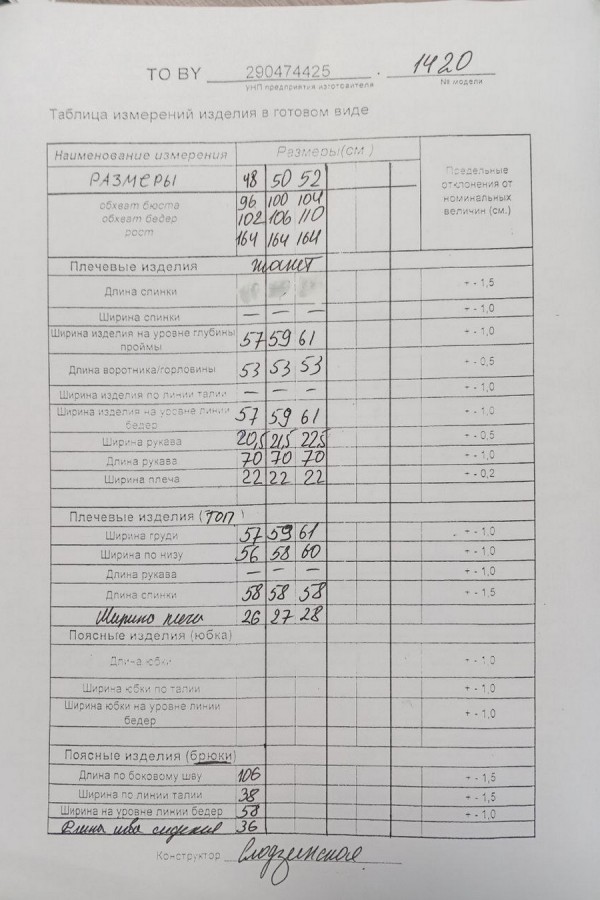 ТО BY 290474425 . 1420
УНП предприятия изготовителя № модели
Таблица измерений изделия в готовом виде
Наименование измерения Размеры(см.) Предельные отклонения от номинальных величин (см.)
РАЗМЕРЫ 48 50 52
обхват бюста 96 100 104
обхват бедер 102 106 110
рост 164 164 164
Плечевые изделия жакет
Длина спинки + - 1,5
Ширина спинки — — — + - 1,0
Ширина изделия на уровне глубины проймы 57 59 61 + - 1,0
Длина воротника/горловины 53 53 53 + - 0,5
Ширина изделия по линии талии — — — + - 1,0
Ширина изделия на уровне линии бедер 57 59 61 + - 1,0
Ширина рукава 20,5 21,5 22,5 + - 0,5
Длина рукава 70 70 70 + - 1,0
Ширина плеча 22 22 22 + - 0,2
Плечевые изделия (ТОП)
Ширина груди 57 59 61 + - 1,0
Ширина по низу 56 58 60 + - 1,0
Длина рукава — — — + - 1,0
Длина спинки 58 58 58 + - 1,5
Ширина плеча 26 27 28
Поясные изделия (юбка)
Длина юбки + - 1,0
Ширина юбки по талии + - 1,0
Ширина юбки на уровне линии бедер + - 1,0
Поясные изделия (брюки)
Длина по боковому шву 106 + - 1,5
Ширина по линии талии 38 + - 1,5
Ширина на уровне линии бедер 58 + - 1,0
Длина шва сидения 36
Конструктор Слодзинская